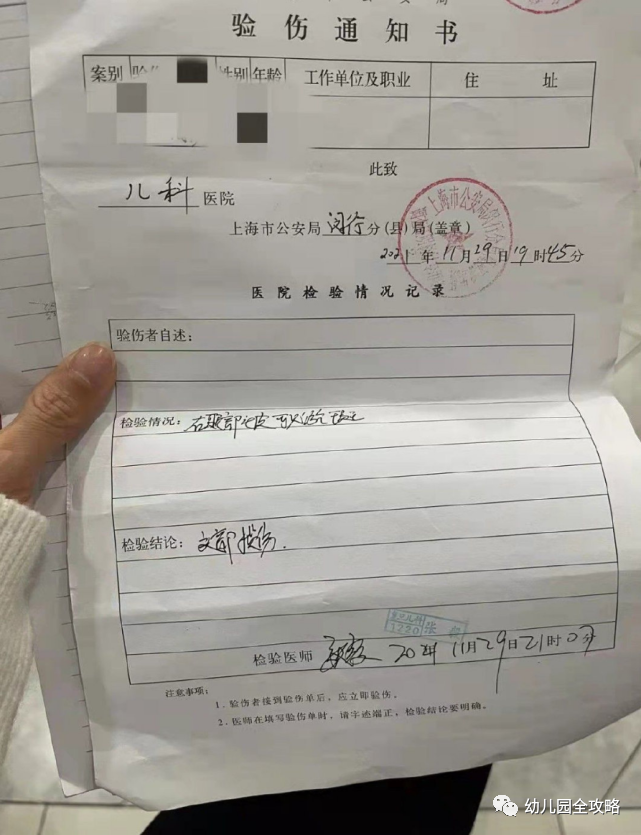 验伤通知书
案别 性别 年龄 工作单位及职业 住址
此致
儿科 医院
上海市公安局 闵行 分(县)局(盖章)
2021 年 11 月 29 日 19 时 45 分
医院检验情况记录
验伤者自述：
检验情况：
检验结论：
检验医师 2021年 11月29日21时07分
注意事项：
1．验伤者接到验伤单后，应立即验伤。
2．医师在填写验伤单时，请字迹端正，检验结论要明确。
幼儿园全攻略